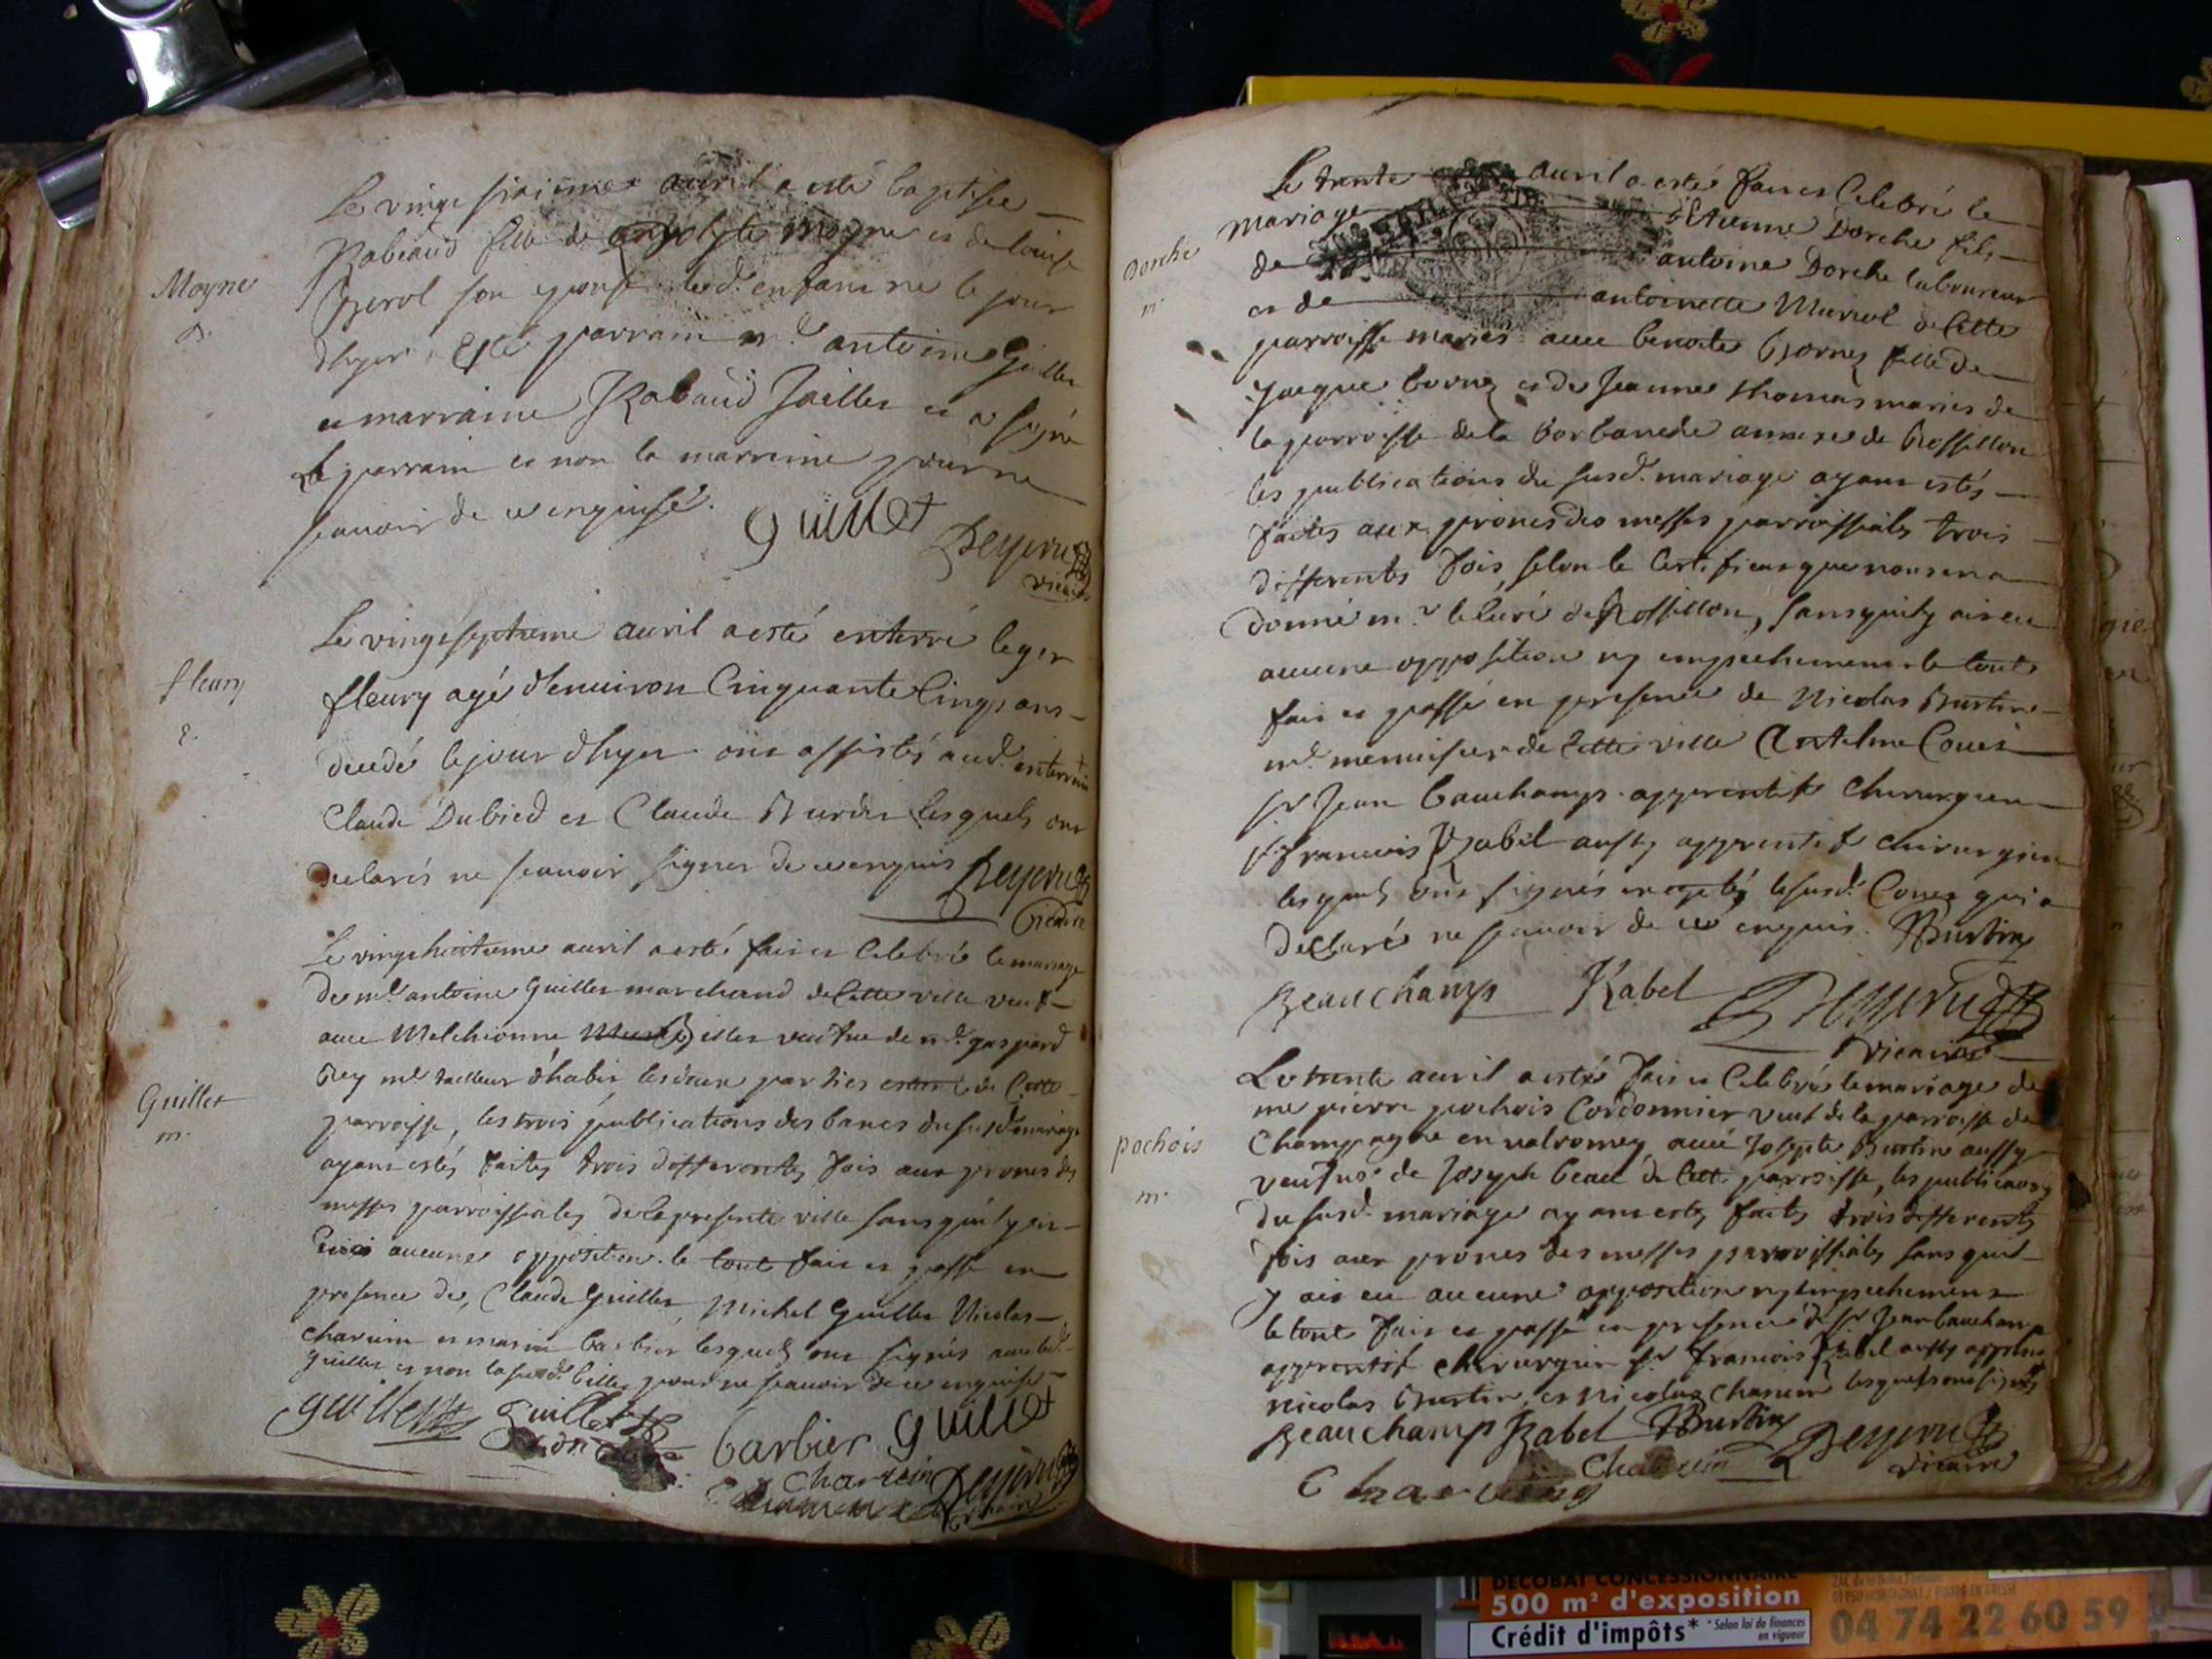 Moyne
Le vingt sixieme avril a esté baptisée
fille de moyne et de louise
Berol son epouse led. enfant ne le jour
d'hyer este parrain mr. antoine Guillet
et marraine Rabaud Jaillet et a signé
le parrain et non la marreine pour ne
scavoir de ce enquise.
Guillet
Deyeru
vicaire
fleury
Le vingt septieme auril a esté enterré leger
fleury agé d'enuiron Cinquante Cinq ans
decedé le jour d'hyer ont assistés aud. enterrem
Claude Dubied et Claude Burdin lesquels ont
declarés ne scauoir signer de ce enquis Deyeru
vicaire
Guillet
m.
Le vingt huitieme auril a esté fait et Celebré le mariage
de mr. antoine Guillet marchand de Cette ville veuf
auec Melchionne Billet veufue de mr. gaspard
Rey me. tailleur d'habit les deux parties estant de Cette
parroisse, les trois publications des bancs du susd. mariage
ayant estés faites trois differentes fois aux prones des
messes parroissiales de la presente ville sans qu'il y ait
aucune opposition. le tout fait et passé en
presence de, Claude Guillet, Michel Guillet Nicolas
Charuin et marin barbier lesquels ont signés auec led.
guillet et non la susd. billet pour ne scauoir de ce enquise
guillet Guillet barbier guillet
Charuin Deyeru
Dorche
m.
Le trente auril a esté fait et Celebré le
mariage
de d'Etienne Dorche fils
antoine Dorche laboureur
et de antoinette Murriol de Cette
parroisse mariés auec benoite Bornez fille de
Jacque bornez et de Jeanne thomas mariés de
la parroisse de la Borbanche annexe de Rossillon
les publications du susd. mariage ayant estés
faites aux prones des messes parroissiales trois
differentes fois, selon le Certificat que nous en a
donné mr. le Curé de Rossillon, sans qu'il y ait eu
aucune opposition ny empechement le tout
fait et passé en presence de Nicolas Burtin
me. menuisier de Cette ville Antelme Couet
sr. Jean bauchamp apprentif chirurgien
sr. francois Rabel aussy apprentif chirurgien
lesquels ont signés excepté le susd. Couet qui a
declaré ne scauoir de ce enquis. NBurtin
Beauchamp Rabel Deyeru
vicaire
pochois
m.
Le trente auril a esté fait et Celebré le mariage de
me pierre pochois Cordonnier veuf de la parroisse de
Champagne en valromey auec Josepte Burtin aussy
veufue de Joseph beau de Cette parroisse, les publications
du susd. mariage ayant estés faites trois differentes
fois aux prones des messes parroissiales sans quil
y ait eu aucune opposition ny empechement
le tout fait et passé en presence de sr Jean bauchamp
apprentif chirurgien sr francois Rabel aussy apprentif
nicolas Burtin, et Nicolas Charuin lesquels ont signés
Beauchamp Rabel NBurtin Deyeru
Charuin vicaire
DECOBAT CONCESSIONNAIRE
500 m² d'exposition
Crédit d'impôts* *Selon loi de finances
en vigueur
04 74 22 60 59